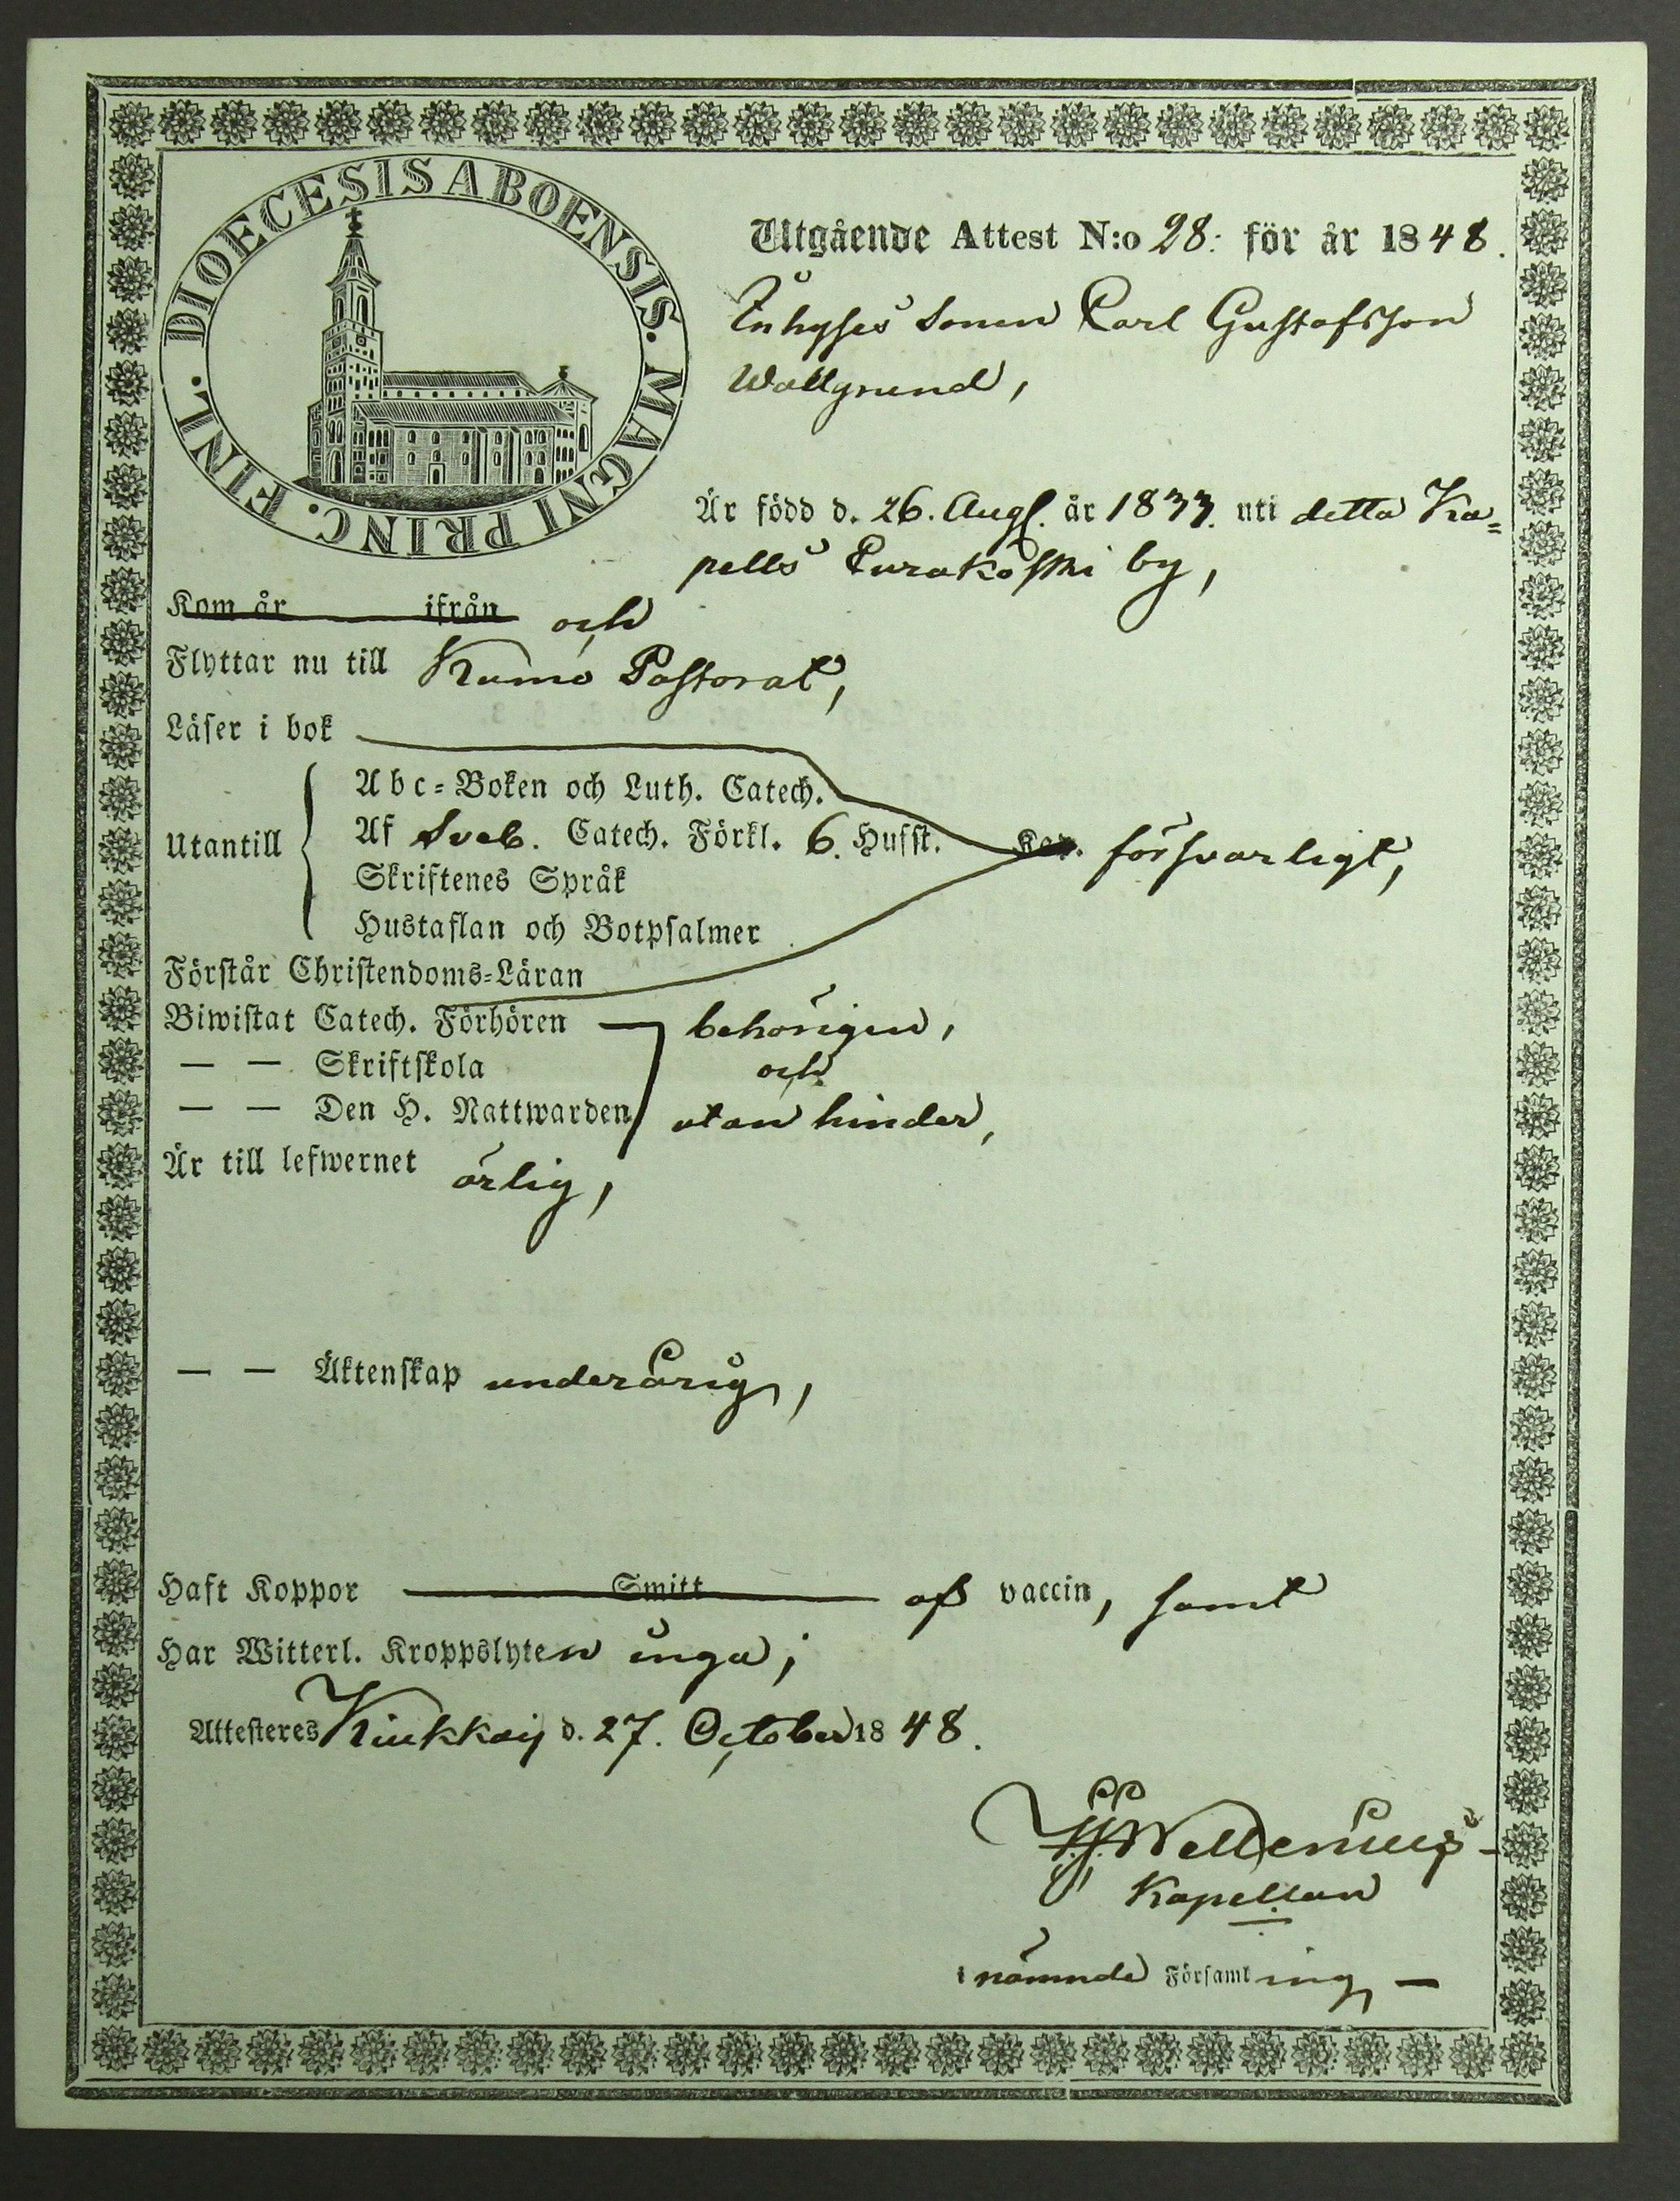 DIOECESIS ABOENSIS. MAGNI PRINC. FINL.
Utgående Attest N:o 28: för år 1848.
Inhyses Sonen Carl Gustafsson
Wallgrund,
Är född d. 26. Aug. år 1833. uti detta Ka=
pells Eurakoski by,
Kom år ifrån och
Flyttar nu till Kumo Pastorat,
Läser i bok
Abc=Boken och Luth. Catech.
Utantill Af Sveb. Catech. Förkl. 6. Hufst. Kap. försvarligt,
Skriftenes Språk
Hustaflan och Botpsalmer
Förstår Christendoms=Läran
Biwistat Catech. Förhören behörigen,
— — Skriftskola och
— — Den H. Nattwarden utan hinder,
Är till lefwernet ärlig,
— — Äktenskap underårig,
Haft Koppor Smitt af vaccin, samt
Har Witterl. Kroppslyten inga;
Attesteres Kiukkais d. 27. October 1848.
Wellenius
Kapellan
i nämnde Församling —